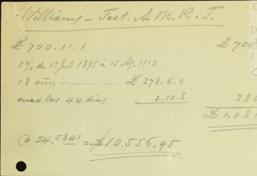 Williams – Test. A. M. R. T.
£ 700.11.1 £ 700
2½% de 12 Jul 1895 à 15 Ap. 1912
18 años £ 278.6.0
mas los 44 dias 2.10.8 280
£ 1.031
@ 24.5841 = $10.556,95